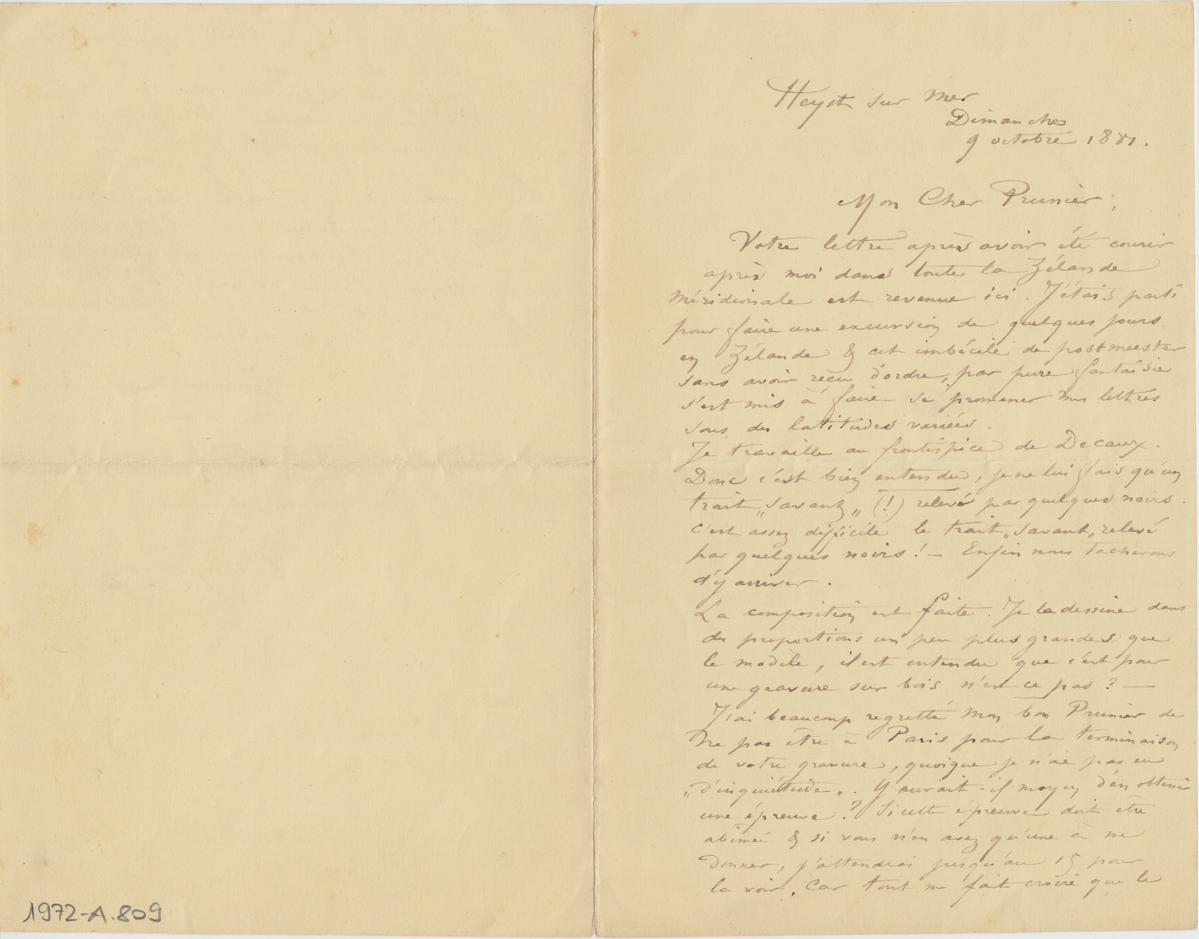 1972-A.809
Heyst sur Mer
Dimanche
9 octobre 1881.
Mon Cher Prunier,
Votre lettre après avoir été courir
après moi dans toute la Zélande
Méridionale est revenue ici. J'étais parti
pour faire une excursion de quelques jours
en Zélande & cet imbécile de postmeester
sans avoir reçu d'ordre, par pure fantaisie
s'est mis à faire se promener mes lettres
sous des latitudes variées.
Je travaille au frontispice de Decaux.
Donc c'est bien entendu, je ne lui fais qu'un
trait „savant„ (!) relevé par quelques noirs.
c'est assez difficile le trait „savant„ relevé
par quelques noirs! — Enfin nous tacherons
d'y arriver.
La composition est faite. Je la dessine dans
des proportions un peu plus grandes que
le modèle, il est entendu que c'est pour
une gravure sur bois n'est ce pas? —
J'ai beaucoup regretté mon bon Prunier de
ne pas être à Paris pour la terminaison
de votre gravure, quoique je n'aie pas eu
„d'inquiétude„. Y aurait-il moyen d'en obtenir
une épreuve? Si cette épreuve doit être
abimée & si vous n'en avez qu'une à me
donner, j'attendrai jusqu'au 15 pour
la voir. Car tout me fait croire que le